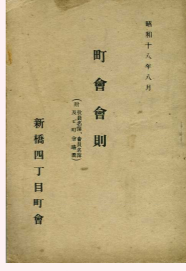 昭和十八年八月
町會會則
新橋四丁目町會